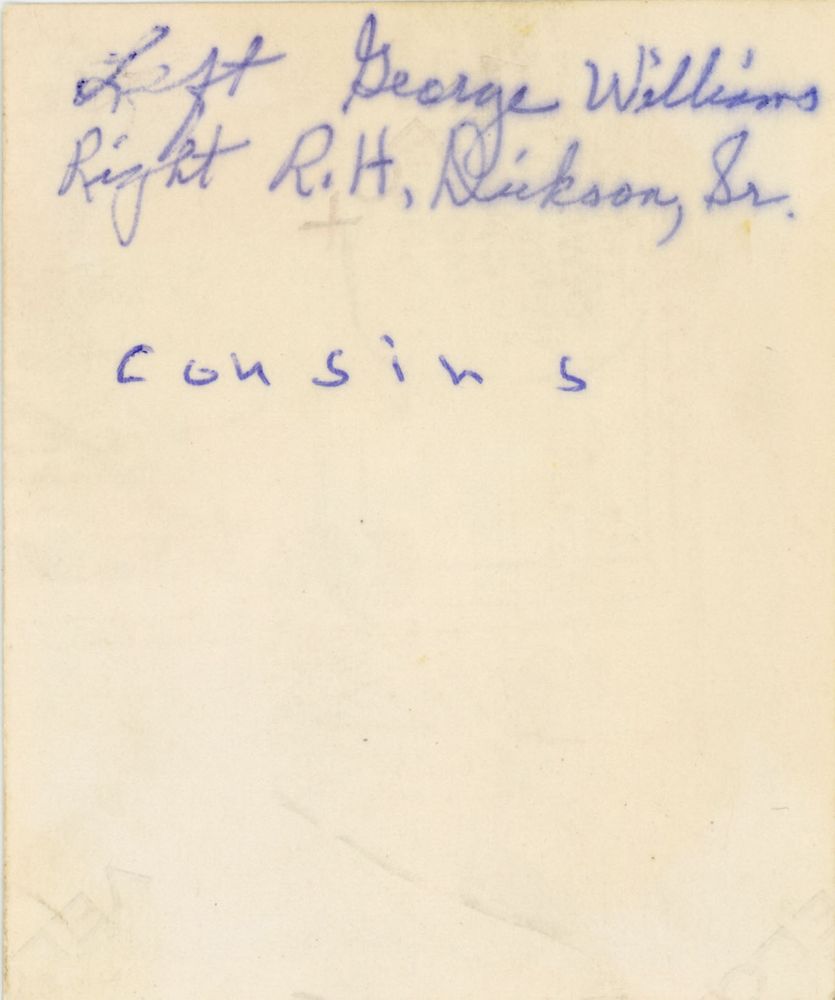 Left George Williams
Right R.H. Dickson, Sr.
cousins